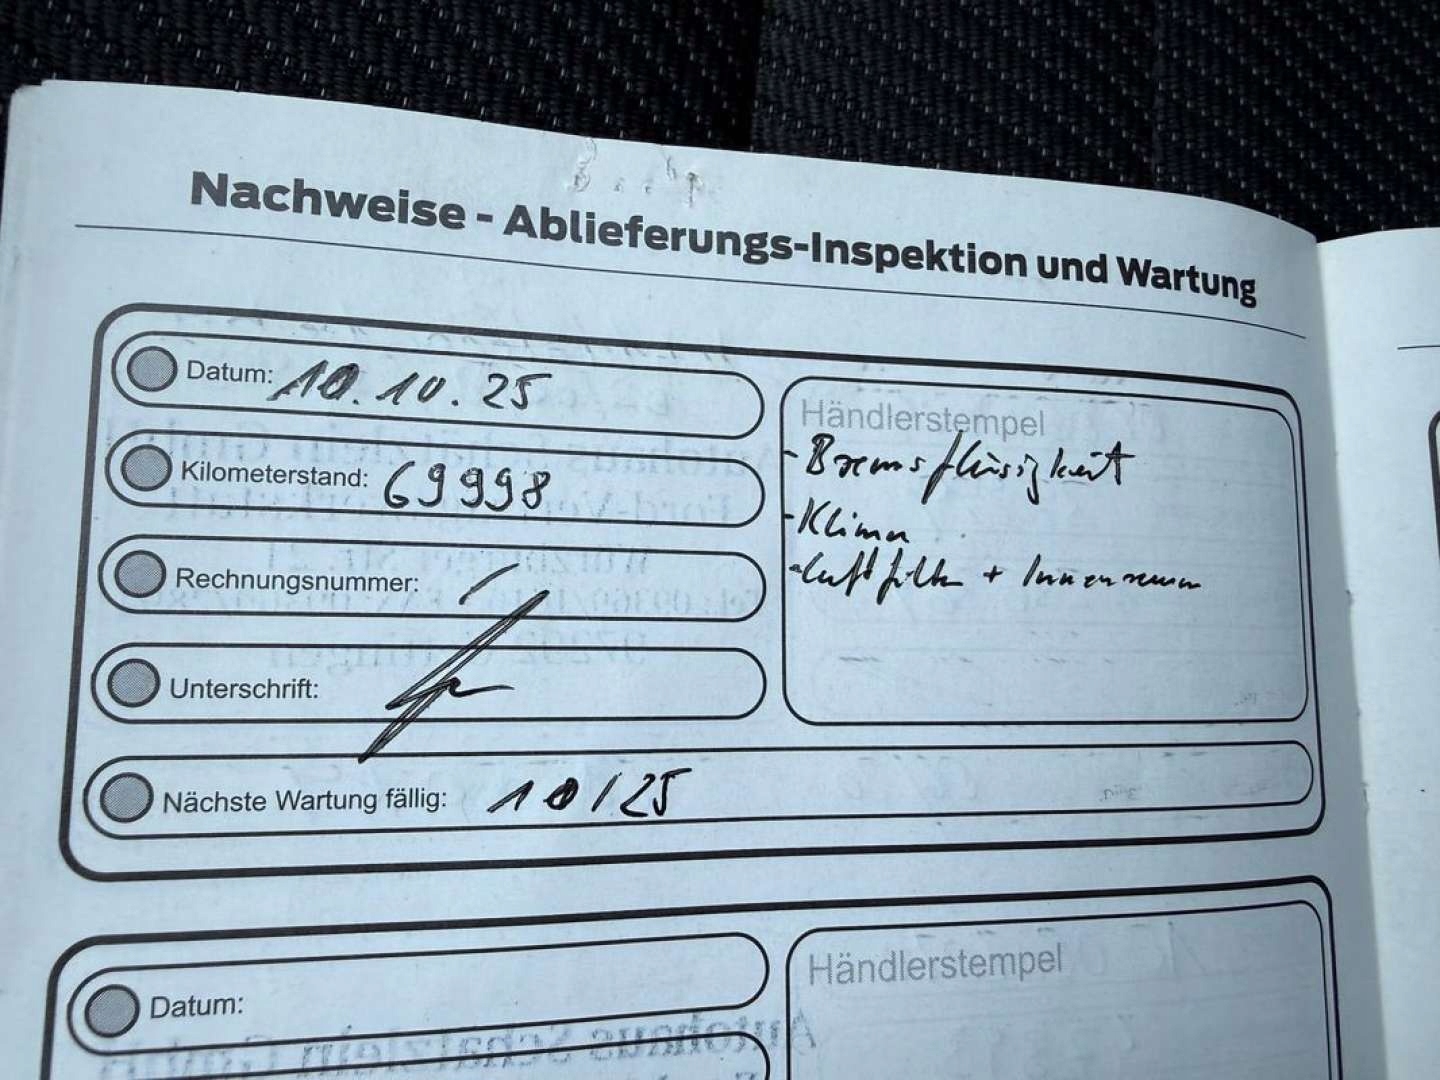 Nachweise - Ablieferungs-Inspektion und Wartung
Datum: 10.10.25
Kilometerstand: 69998
Rechnungsnummer: /
Unterschrift:
Nächste Wartung fällig: 10/25
Händlerstempel
- Bremsflüssigkeit
- Klima
- Luftfilter + Innenraum
Datum:
Händlerstempel
Autohaus Schätzlein GmbH